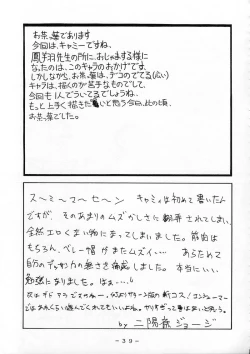 お茶、葉であります
今回は、キャミーですね、
鳳羊羽先生の所に、おじゃまする様に
なったのは、このキャラのおかげです。
しかしながら、お茶、葉は、デコのでてる(広い)
キャラは、描くのが苦手なものでして、
今回も1人でうなってるでしょうね…
もっと上手く描きたいと思う今日、此の頃、
お茶、葉でした。
ス〜ミ〜マ〜セ〜ン キャミィは初めて書いたん
ですが、そのあまりのムズかしさに翻弄されてしまい、
全然エロくない物になってしまいました。筋肉は
もちろん、ベレー帽がまたムズイ… あらためて
自分のデッサン力の無さを痛感しました。本当にいい
勉強になりました。はぁ…
by 二陽帝ジョージ
-39-